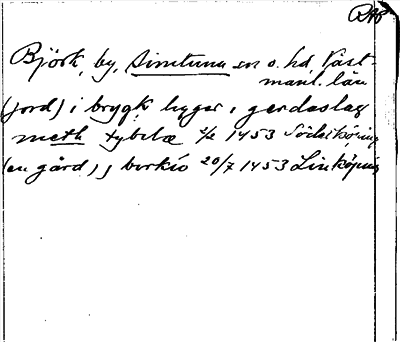 RAP
Björk, by, Simtuna sn o. hd, Väst-
manl. län
(jord) i brygk ligger i gerdaslag
meth tybelæ 2/2 1453 Söderköping
(en gård) j birkio 20/7 1453 Linköping